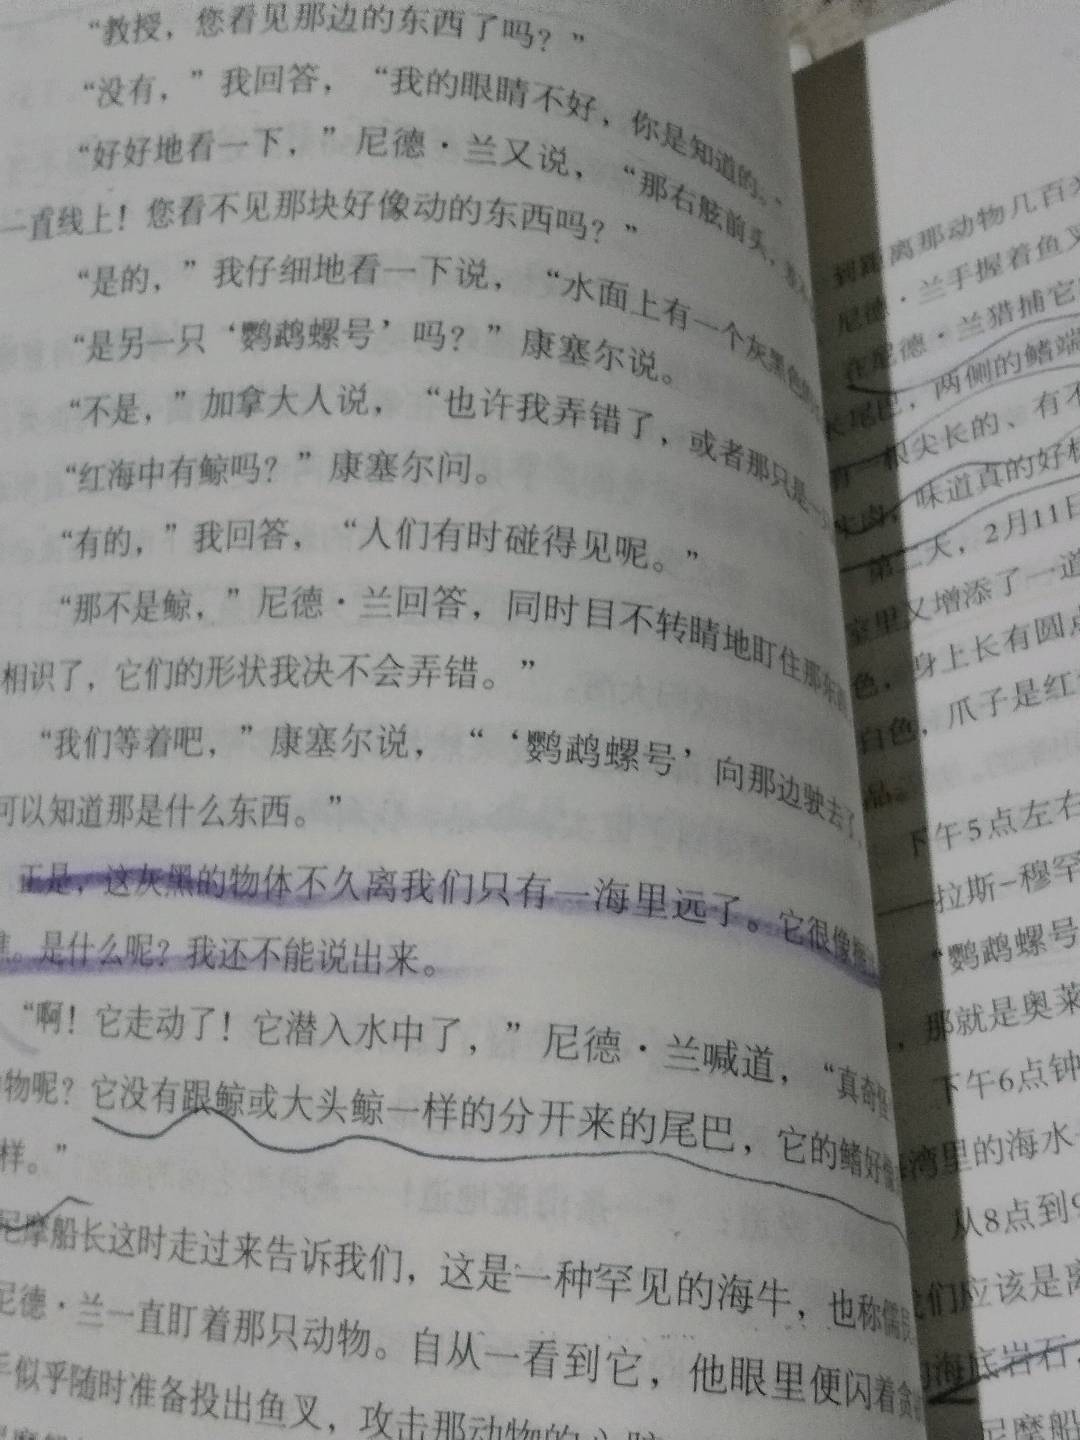 “教授，您看见那边的东西了吗？”
“没有，”我回答，“我的眼睛不好，你是知道的。”
“好好地看一下，”尼德·兰又说，“那右舷前头，
一直线上！您看不见那块好像动的东西吗？”
“是的，”我仔细地看一下说，“水面上有一个灰黑色
“是另一只‘鹦鹉螺号’吗？”康塞尔说。
“不是，”加拿大人说，“也许我弄错了，或者那只是一
“红海中有鲸吗？”康塞尔问。
“有的，”我回答，“人们有时碰得见呢。”
“那不是鲸，”尼德·兰回答，同时目不转睛地盯住那东西
相识了，它们的形状我决不会弄错。”
“我们等着吧，”康塞尔说，“‘鹦鹉螺号’向那边驶去了，
可以知道那是什么东西。”
正是，这灰黑的物体不久离我们只有一海里远了。它很像
。是什么呢？我还不能说出来。
“啊！它走动了！它潜入水中了，”尼德·兰喊道，“真奇怪
物呢？它没有跟鲸或大头鲸一样的分开来的尾巴，它的鳍好像
样。”
尼摩船长这时走过来告诉我们，这是一种罕见的海牛，也称儒艮
尼德·兰一直盯着那只动物。自从一看到它，他眼里便闪着贪
手似乎随时准备投出鱼叉，攻击那动物的心脏
到距离那动物几百米
尼德·兰手握着鱼叉
在尼德·兰猎捕它
长尾巴，两侧的鳍端
根尖长的、有不
牛肉，味道真的好极
第二天，2月11日
室里又增添了一道
色，身上长有圆点
白色，爪子是红
品。
下午5点左右
——拉斯-穆罕
“鹦鹉螺号
，那就是奥莱
下午6点钟
湾里的海水
从8点到9
我们应该是离
海底岩石，
尼摩船